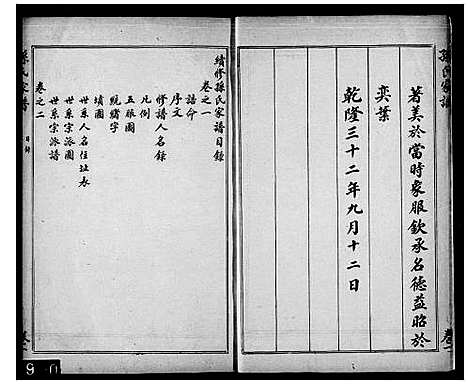 孫氏家譜
卷一
著美於當時象服欽承名德益昭於
奕葉
乾隆三十二年九月十二日
續修孫氏家譜目錄
卷之一
誥命
序文
修譜人名錄
凡例
五服圖
統緒字
墳圖
世系人名住址表
世系宗派圖
世系宗派譜
卷之二
孫氏家譜
目錄
卷一